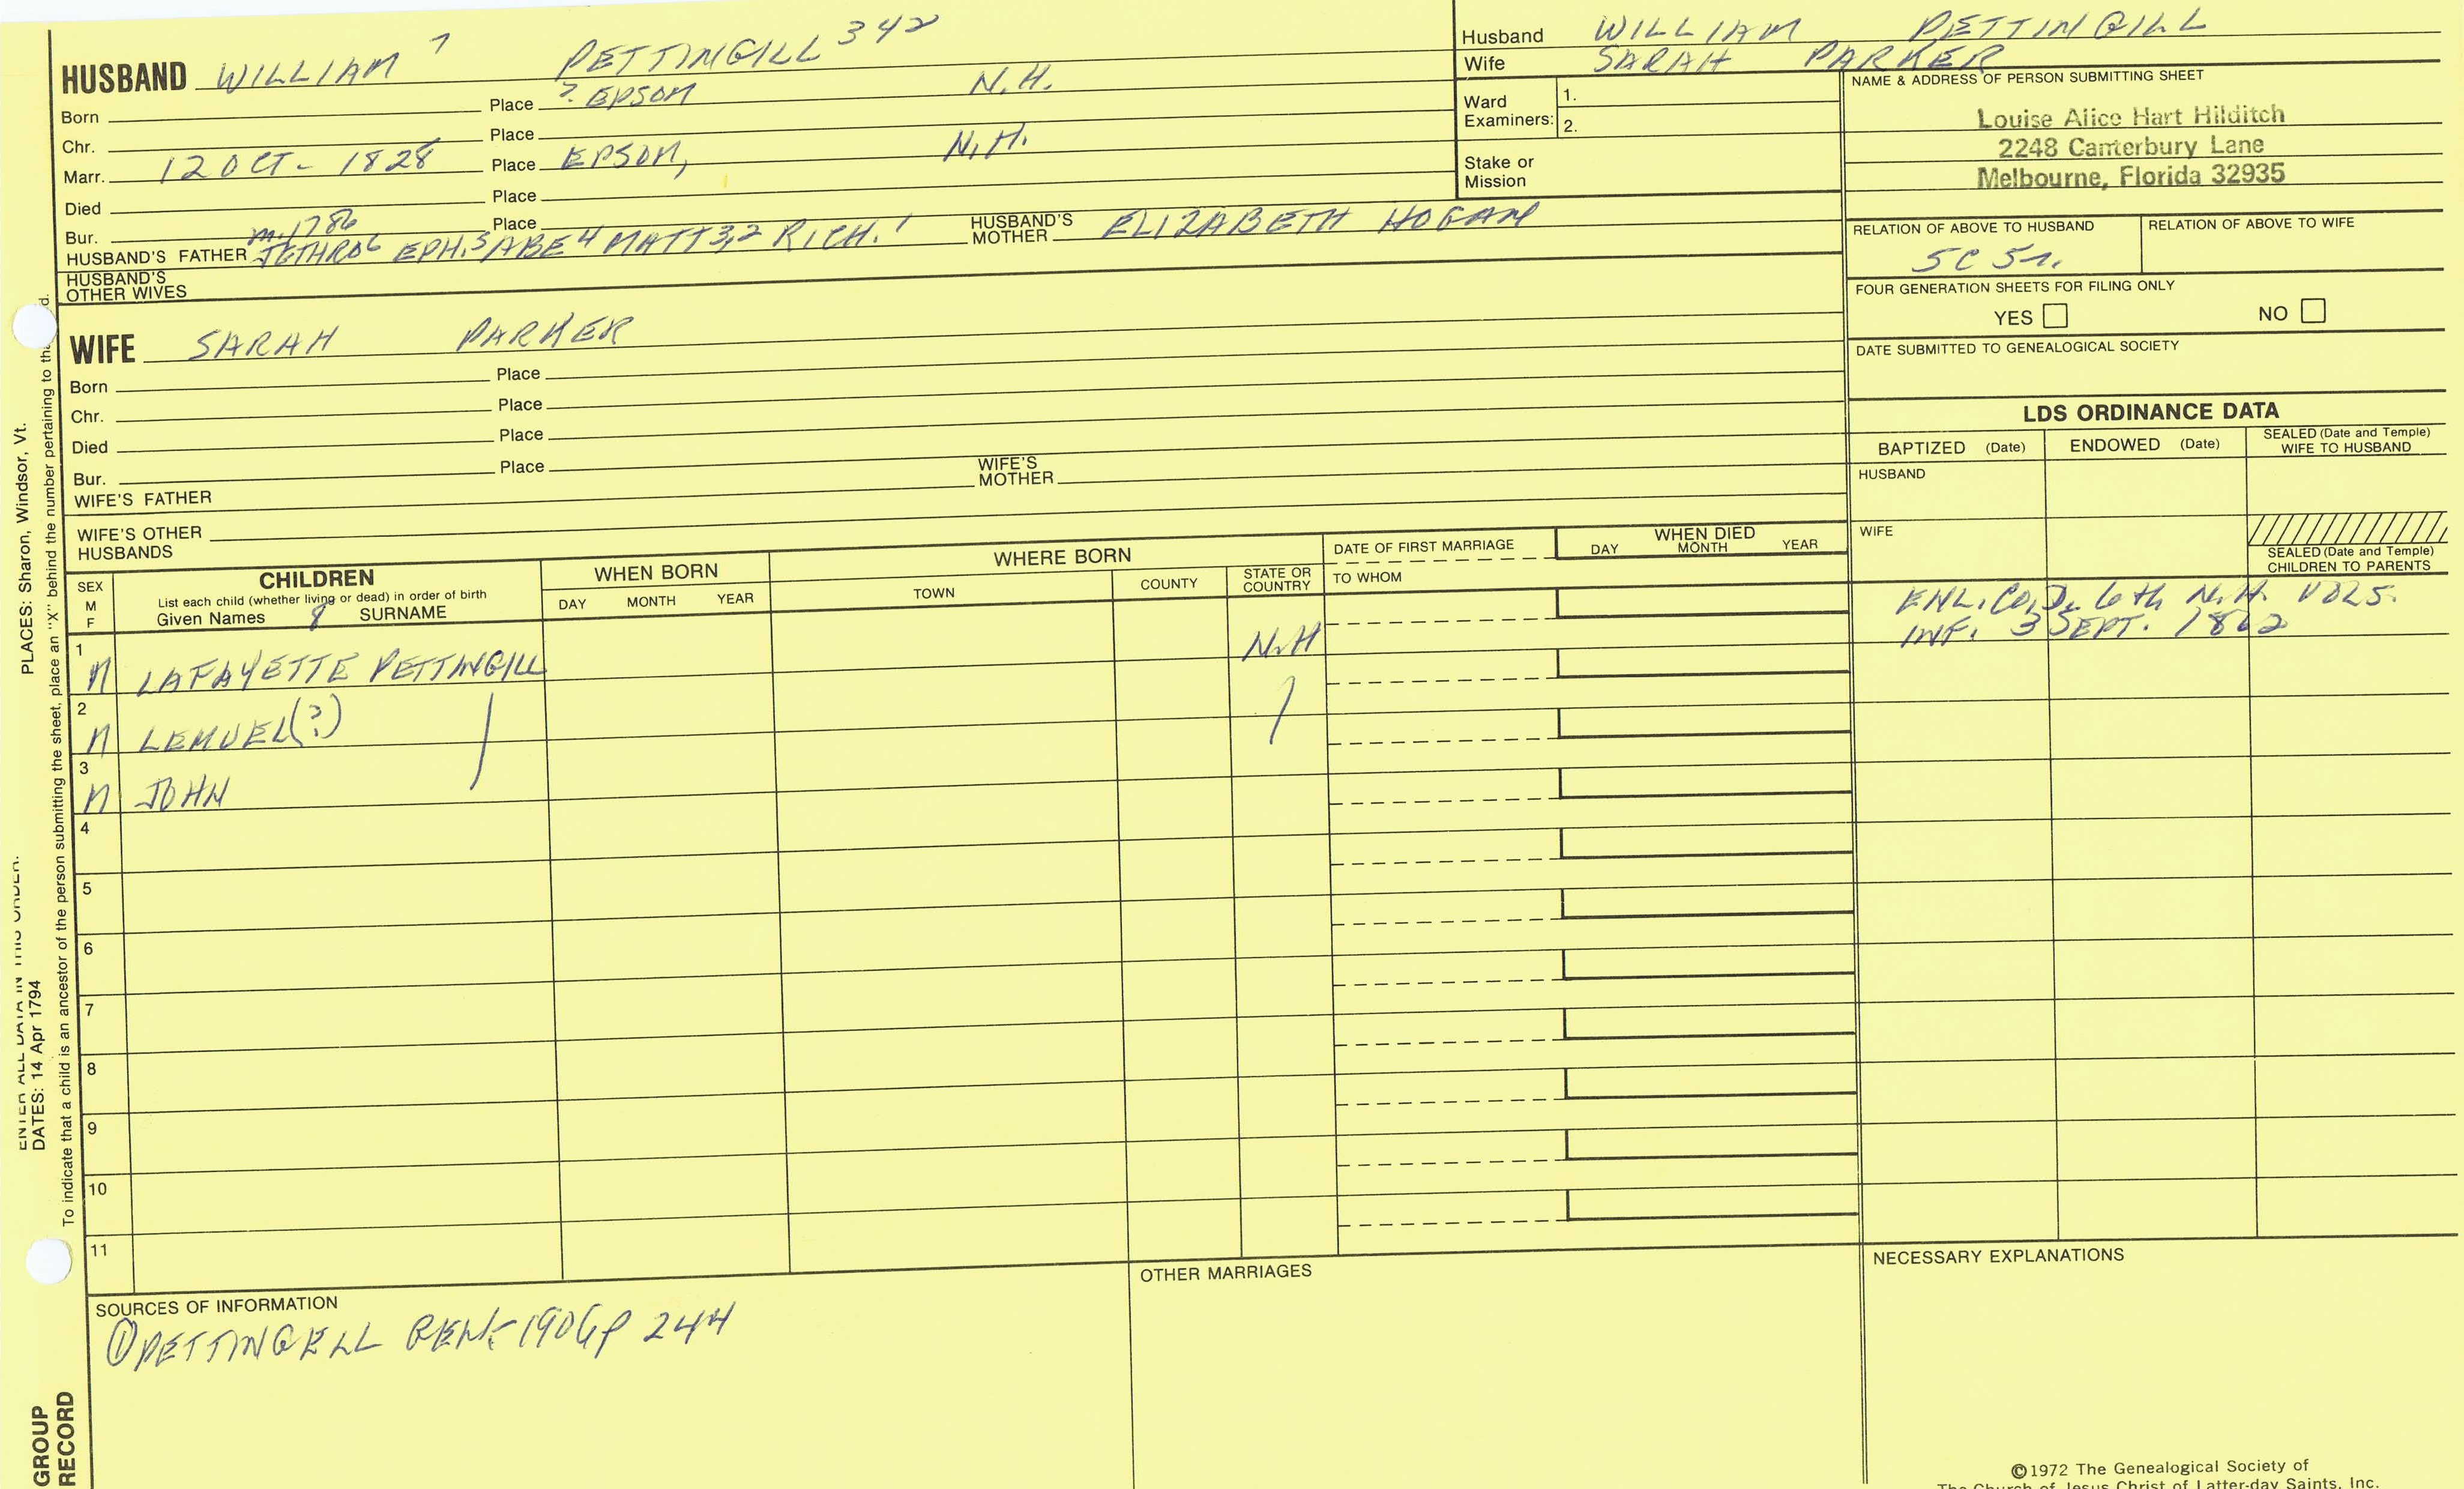 HUSBAND WILLIAM 7 PETTINGILL 342
Born Place ? EPSOM N.H.
Chr. Place
Marr. 12 OCT - 1828 Place EPSOM, N.H.
Died Place
Bur. Place
m. 1786
HUSBAND'S FATHER JETHRO6 EPH.5 ABE4 MATT3,2 RICH.1 HUSBAND'S MOTHER ELIZABETH HOGAN
HUSBAND'S
OTHER WIVES
WIFE SARAH PARKER
Born Place
Chr. Place
Died Place
Bur. Place
WIFE'S FATHER WIFE'S MOTHER
WIFE'S OTHER
HUSBANDS
Husband WILLIAM PETTINGILL
Wife SARAH PARKER
Ward
Examiners: 1.
2.
Stake or
Mission
NAME & ADDRESS OF PERSON SUBMITTING SHEET
Louise Alice Hart Hilditch
2248 Canterbury Lane
Melbourne, Florida 32935
RELATION OF ABOVE TO HUSBAND RELATION OF ABOVE TO WIFE
5C 5r.
FOUR GENERATION SHEETS FOR FILING ONLY
YES NO
DATE SUBMITTED TO GENEALOGICAL SOCIETY
LDS ORDINANCE DATA
BAPTIZED (Date) ENDOWED (Date) SEALED (Date and Temple)
WIFE TO HUSBAND
HUSBAND
WIFE
SEALED (Date and Temple)
CHILDREN TO PARENTS
ENL. CO. D. 6th N.H. VOLS.
INF. 3 SEPT. 1862
SEX
M
F
CHILDREN
List each child (whether living or dead) in order of birth
Given Names 8 SURNAME
WHEN BORN
DAY MONTH YEAR
WHERE BORN
TOWN COUNTY STATE OR COUNTRY
DATE OF FIRST MARRIAGE
TO WHOM
WHEN DIED
DAY MONTH YEAR
1 M LAFAYETTE PETTINGILL N.H
2 M LEMUEL(?)
3 M JOHN
4
5
6
7
8
9
10
11
SOURCES OF INFORMATION
① PETTINGELL GEN. 1906 P 244
OTHER MARRIAGES
NECESSARY EXPLANATIONS
©1972 The Genealogical Society of
The Church of Jesus Christ of Latter-day Saints, Inc.
ENTER ALL DATA IN THIS ORDER:
DATES: 14 Apr 1794 PLACES: Sharon, Windsor, Vt.
To indicate that a child is an ancestor of the person submitting the sheet, place an "X" behind the number pertaining to
GROUP
RECORD